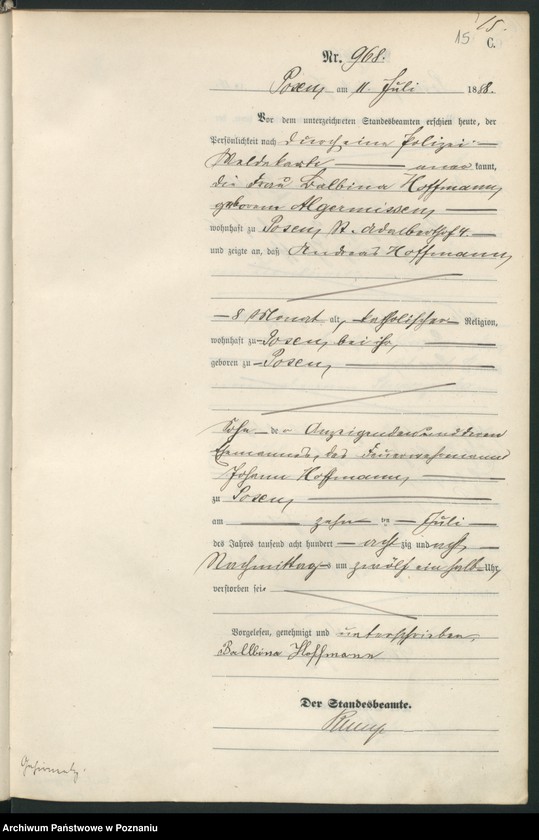 15.
15
C.
Nr. 968.
Posen, am 11. Juli 1888.
Vor dem unterzeichneten Standesbeamten erschien heute, der
Persönlichkeit nach durch eine Polizei-
Meldekarte anerkannt,
die Frau Balbina Hoffmann,
geborene Algermissen,
wohnhaft zu Posen, St. Adalberthof 4.
und zeigte an, daß Andreas Hoffmann,
8 Monat alt, katholischer Religion,
wohnhaft zu Posen, bei ihr,
geboren zu Posen,
Sohn der Anzeigenden und deren
Ehemannes, des Feuerwehrmanns
Johann Hoffmann,
zu Posen,
am zehn ten Juli
des Jahres tausend acht hundert achtzig und acht,
Nachmittags um zwölf ein halb Uhr,
verstorben sei.
Vorgelesen, genehmigt und unterschrieben,
Balbina Hoffmann
Der Standesbeamte.
Archiwum Państwowe w Poznaniu